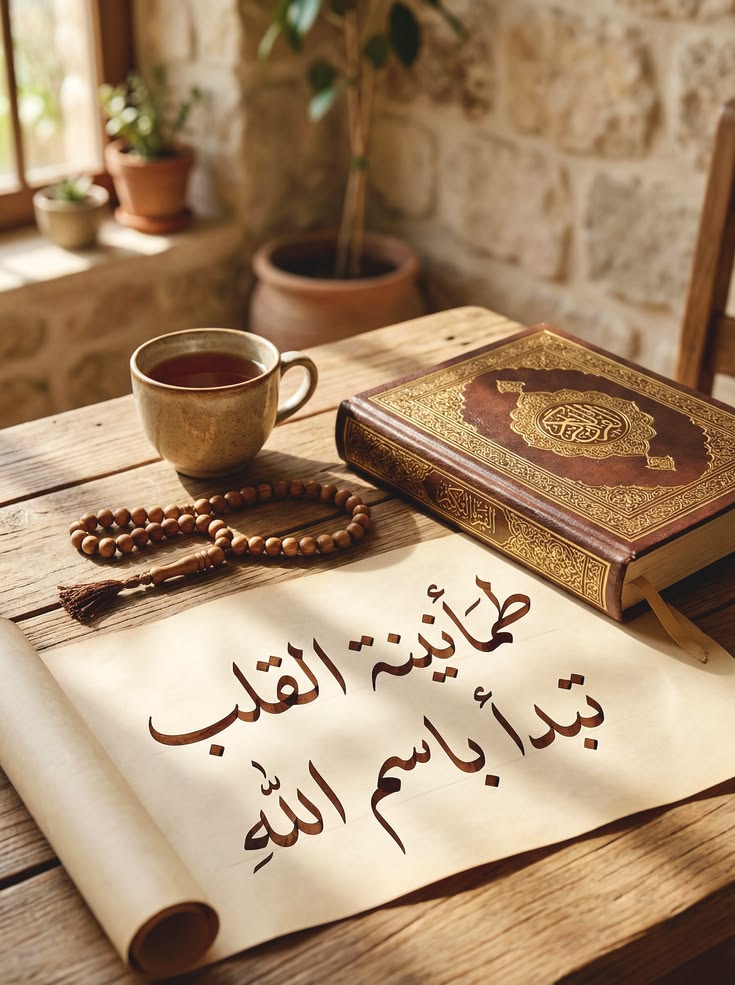 طمأنينة القلب
تبدأ باسم اللهِ